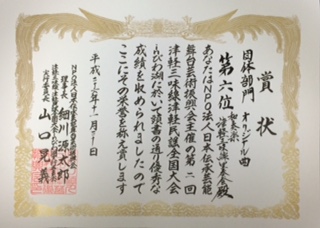 賞状
団体部門 オリジナル曲
第六位
津軽三味線
殿
あなたはNPO法人日本伝承芸能
舞台芸術振興会主催の第二回
津軽三味線津軽民謡全国大会
inびわ湖において頭書の通り優秀な
成績を収められましたので
ここにその栄誉を称え賞します
平成二十 年十一月 日
NPO法人日本伝承芸能舞台芸術振興会
理事長 細川源太郎
津軽三味線津軽民謡全国大会inびわ湖
実行委員長 山口晃義